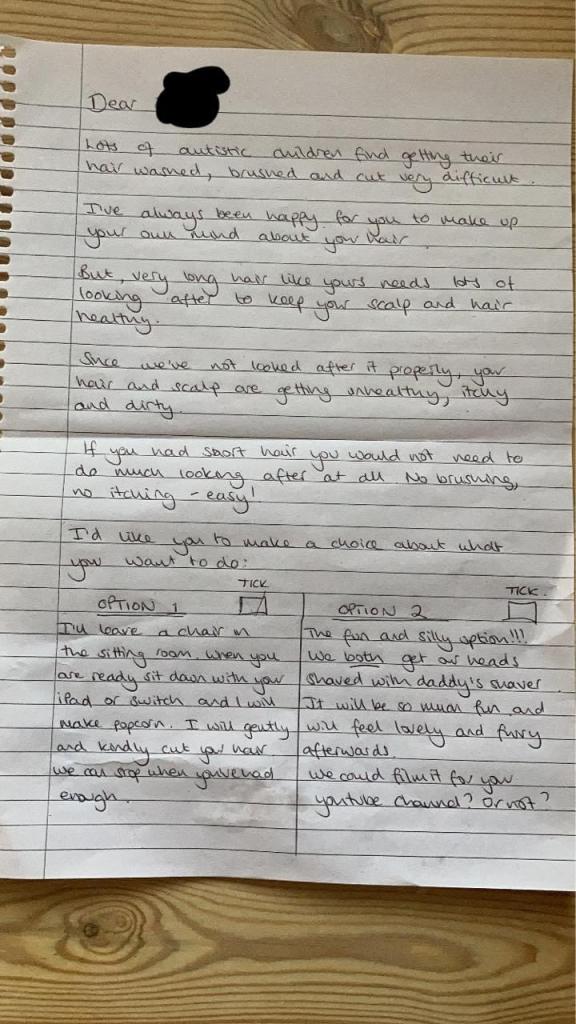 Dear
Lots of autistic children find getting their
hair washed, brushed and cut very difficult.
I've always been happy for you to make up
your own mind about your hair.
But, very long hair like yours needs lots of
looking after to keep your scalp and hair
healthy.
Since we've not looked after it properly, your
hair and scalp are getting unhealthy, itchy
and dirty.
If you had short hair you would not need to
do much looking after at all. No brushing,
no itching - easy!
I'd like you to make a choice about what
you want to do:
TICK
OPTION 1
I'll leave a chair in
the sitting room. When you
are ready sit down with your
iPad or switch and I will
make popcorn. I will gently
and kindly cut your hair
we can stop when you've had
enough.
TICK.
OPTION 2
The fun and silly option!!!
We both get our heads
shaved with daddy's shaver
It will be so much fun and
will feel lovely and furry
afterwards.
We could film it for your
youtube channel? Or not?